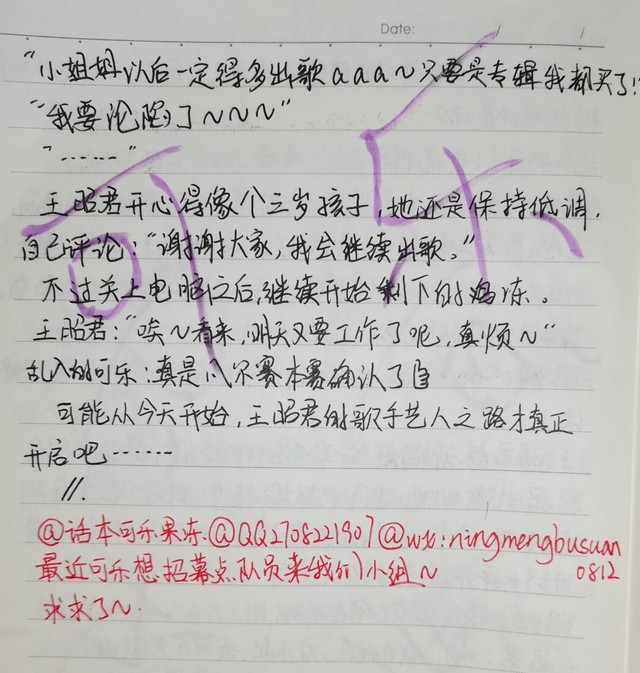 Date: / /
"小姐姐以后一定得多出歌aaa~只要是专辑我都买了!
"我要沦陷了~~~"
"……"
王昭君开心得像个三岁孩子,她还是保持低调,
自己评论:"谢谢大家,我会继续出歌。"
不过关上电脑之后,继续开始剩下的
王昭君:"唉~看来,明天又要工作了呢,真烦~"
乱入的可乐:真是
可能从今天开始,王昭君的歌手艺人之路才真正
开启吧……
//.
@话本可乐果冻@QQ2708221907@wx:ningmengbusuan
0812
最近可乐想招募点队员来我们小组~
求求了~.
可乐